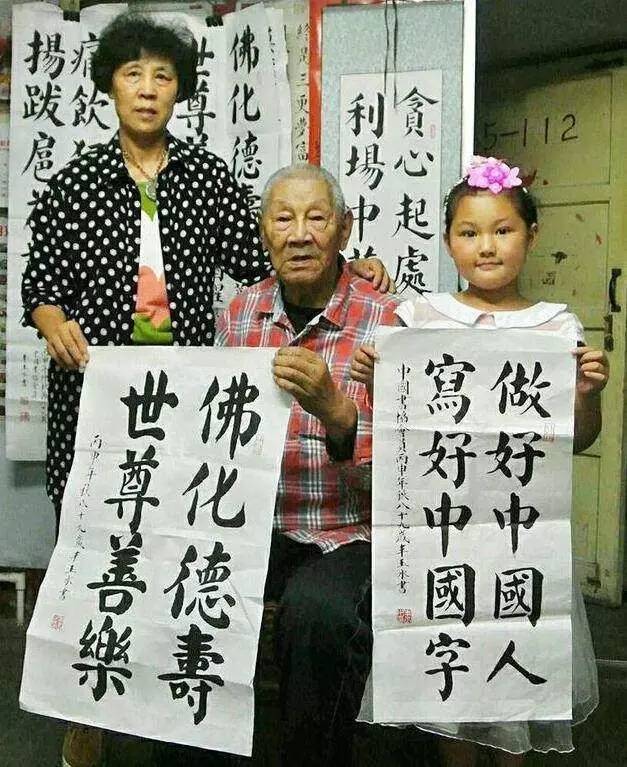 痛飲
揚跋扈為
佛化德壽
世尊
終是三更夢富
貪心起處
利場中
5-112
佛化德壽
世尊善樂
丙申年秋八十九歲 書
做好中國人
寫好中國字
中國書協會員丙申年秋八十九歲 書